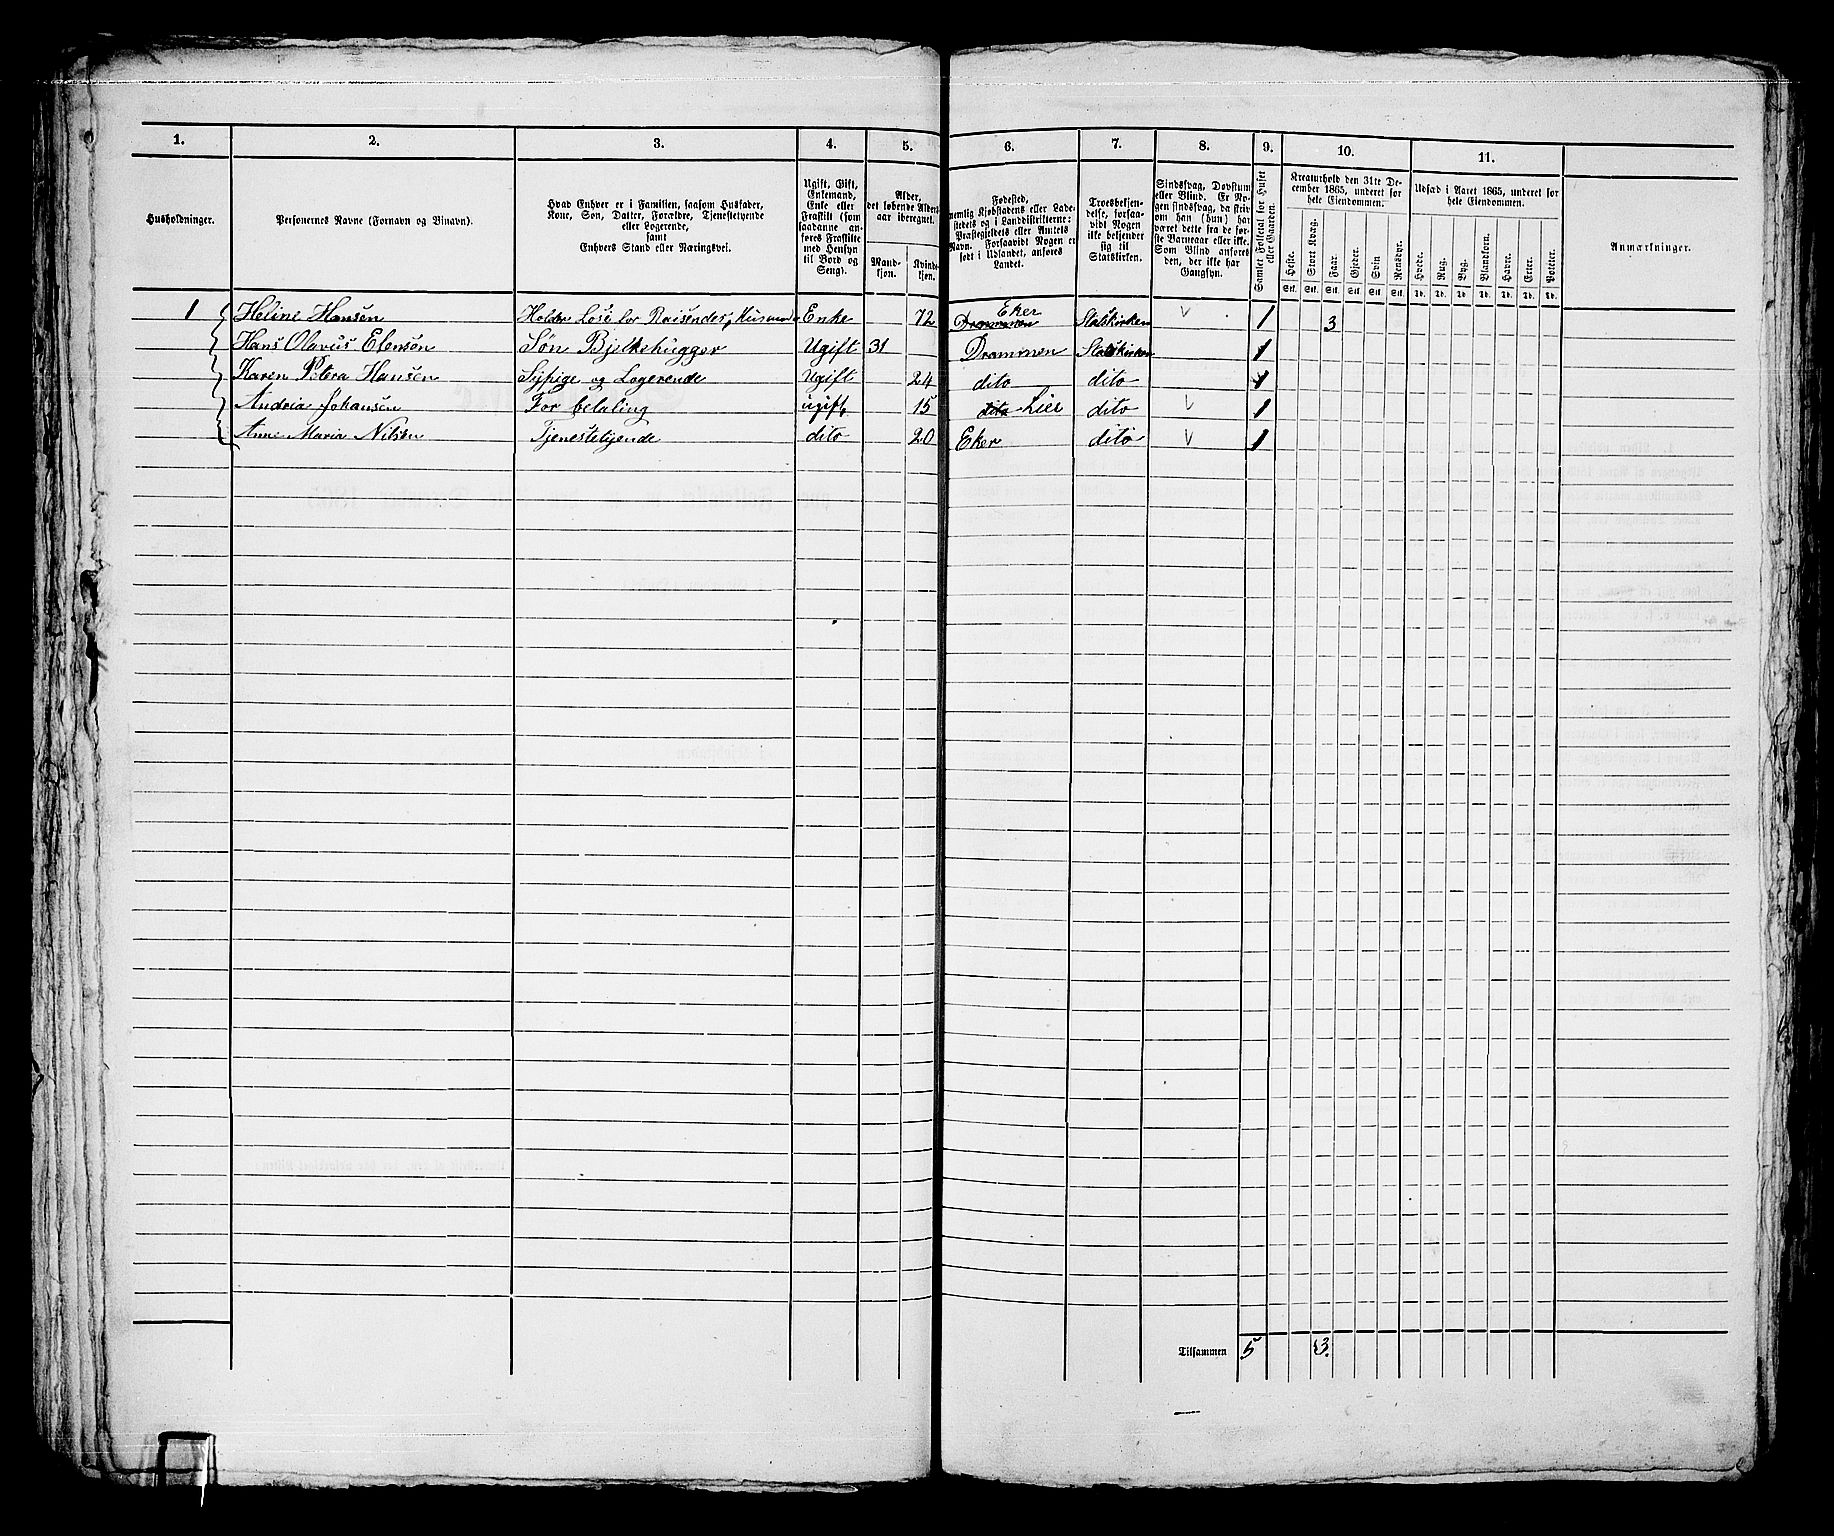 1. 2. 3. 4. 5. 6. 7. 8. 9. 10. 11.
Husholdninger.
Personernes Navne (Fornavn og Binavn).
Hvad Enhver er i Familien, saasom Husfader,
Kone, Søn, Datter, Forældre, Tjenestetyende
eller Logerende,
samt
Enhvers Stand eller Næringsvei.
Ugift, Gift,
Enkemand,
Enke eller
Fraskilt (som
saadanne an-
føres Fraskilte
med Hensyn
til Bord og
Seng).
Alder,
det løbende Alders-
aar iberegnet.
Mand-
kjøn.
Kvinde-
kjøn.
Fødested,
nemlig Kjøbstadens eller Lade-
stedets og i Landdistrikterne:
Præstegjeldets eller Amtets
Navn. Forsaavidt Nogen er
født i Udlandet, anføres
Landet.
Troesbekjen-
delse, forsaa-
vidt Nogen
ikke bekjender
sig til
Statskirken.
Sindssvag, Døvstum
eller Blind. Er No-
gen sindssvag, da skriv
om han (hun) har
været dette fra de før-
ste Barneaar eller ikke.
Som Blind anføres
den, der ikke har
Gangsyn.
Samlet Folketal for Huset
eller Gaarden.
Kreaturhold den 31te De-
cember 1865, underet for
hele Eiendommen.
Heste. Stort Kvæg. Faar. Gjeder. Svin Rensdyr.
Stk. Stk. Stk. Stk. Stk. Stk.
Udsæd i Aaret 1865, underet for
hele Eiendommen.
Hvede. Rug. Byg. Blandkorn. Havre. Erter. Poteter.
Td. Td. Td. Td. Td. Td. Td.
Anmærkninger.
1 Heline Hansen Holder Losi for Reisendes, Enke 72 Drammen Eker Statskirken 1 3
Hans Olavus Elensøn Søn Bjelkehugger Ugift 31 Drammen Statskirken 1
Karen Petera Hansen Sypige og Logerende Ugift 24 dito dito 1
Andria Johansen For betaling ugift 15 dito Lier dito 1
Anne Maria Nilsen Tjenestetyende dito 20 Eker dito 1
Tilsammen 5 3.